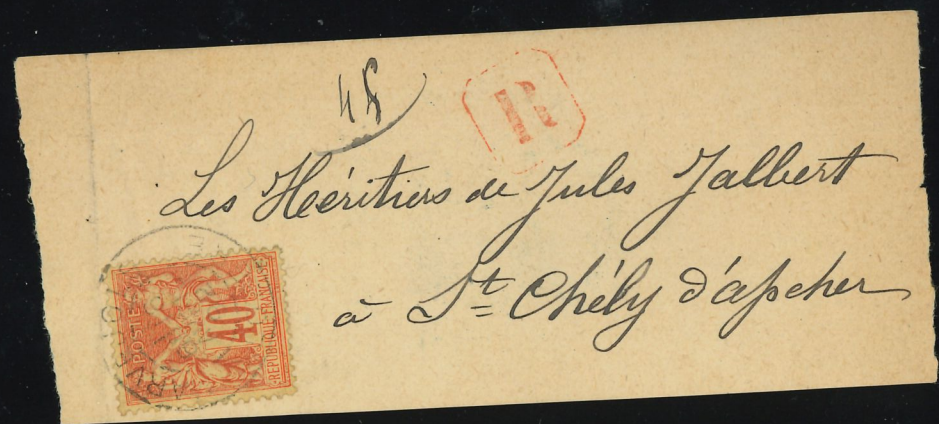 48
R
Les Héritiers de Jules Jalbert
à St Chély d'apcher
POSTES
40
REPUBLIQUE FRANÇAISE